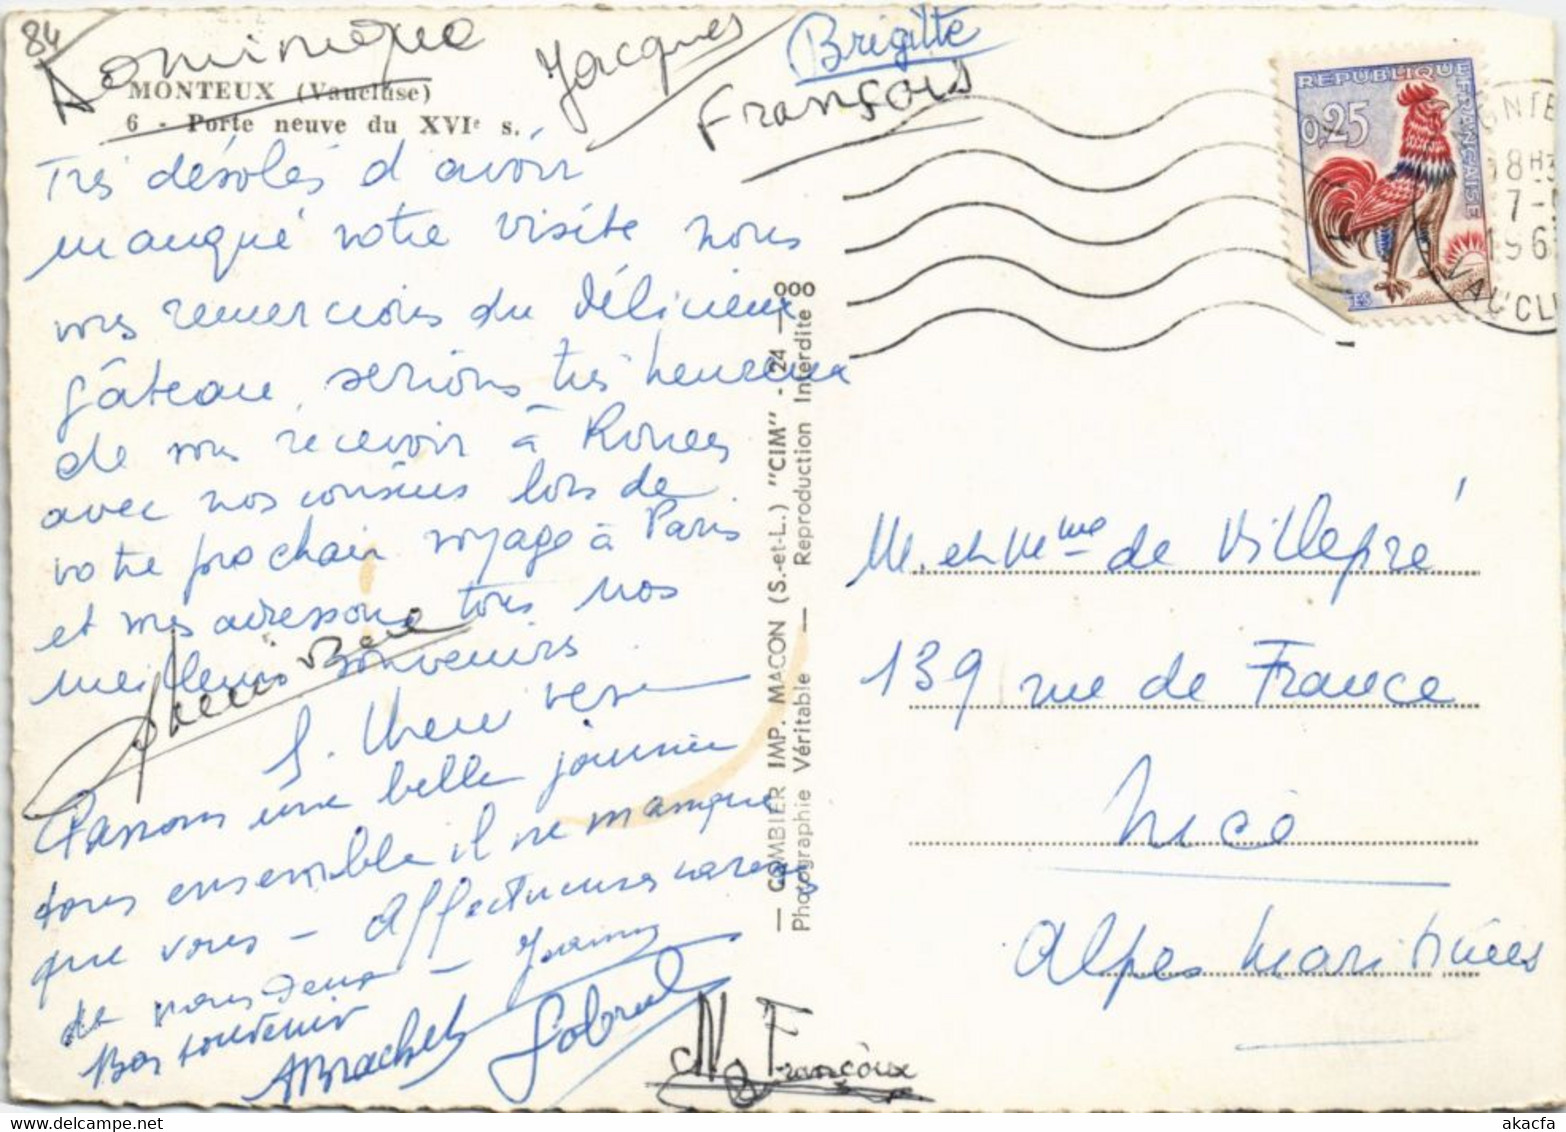 84
Dominique
Jacques
Brigitte
François
MONTEUX (Vaucluse)
6 - Porte neuve du XVIe s.
Très désolés d'avoir
manqué votre visite nous
vous remercions du délicieux
gâteau, serions très heureux
de vous recevoir à
avec nos cousins lors de
votre prochain voyage à Paris
et vous adressons tous nos
meilleurs souvenirs
Passons une belle journée
tous ensemble il ne manque
que vous - Affectueuses caresses
de vous deux -
Bon souvenir
N F
Françoise
— COMBIER IMP. MACON (S.-et-L.) "CIM" - 24 — 000
Photographie Véritable — Reproduction Interdite
REPUBLIQUE FRANÇAISE
0,25
18H3
7-
196
VAUCLU
M. et Mme de Villepré
139 rue de France
Nice
Alpes Maritimes
akacfa
www.delcampe.net